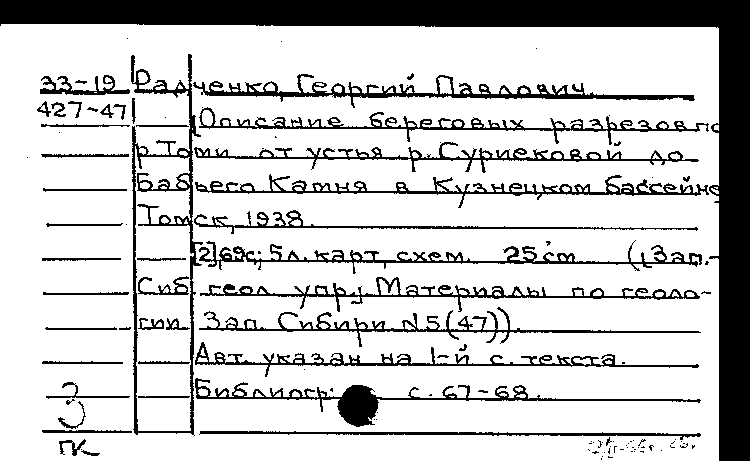 33-19 Радченко, Георгий Павлович.
427-47 [Описание береговых разрезов по
р. Томи от устья р. Суриековой до
Бабьего Камня в Кузнецком бассейне
Томск, 1938.
[2], 69с; 5 л. карт, схем. 25 cm ([Зап.-
Сиб. геол. упр.] Материалы по геоло-
гии Зап. Сибири. N5(47)).
Авт. указан на 1-й с. текста.
Библиогр: с. 67-68.
З
ГК